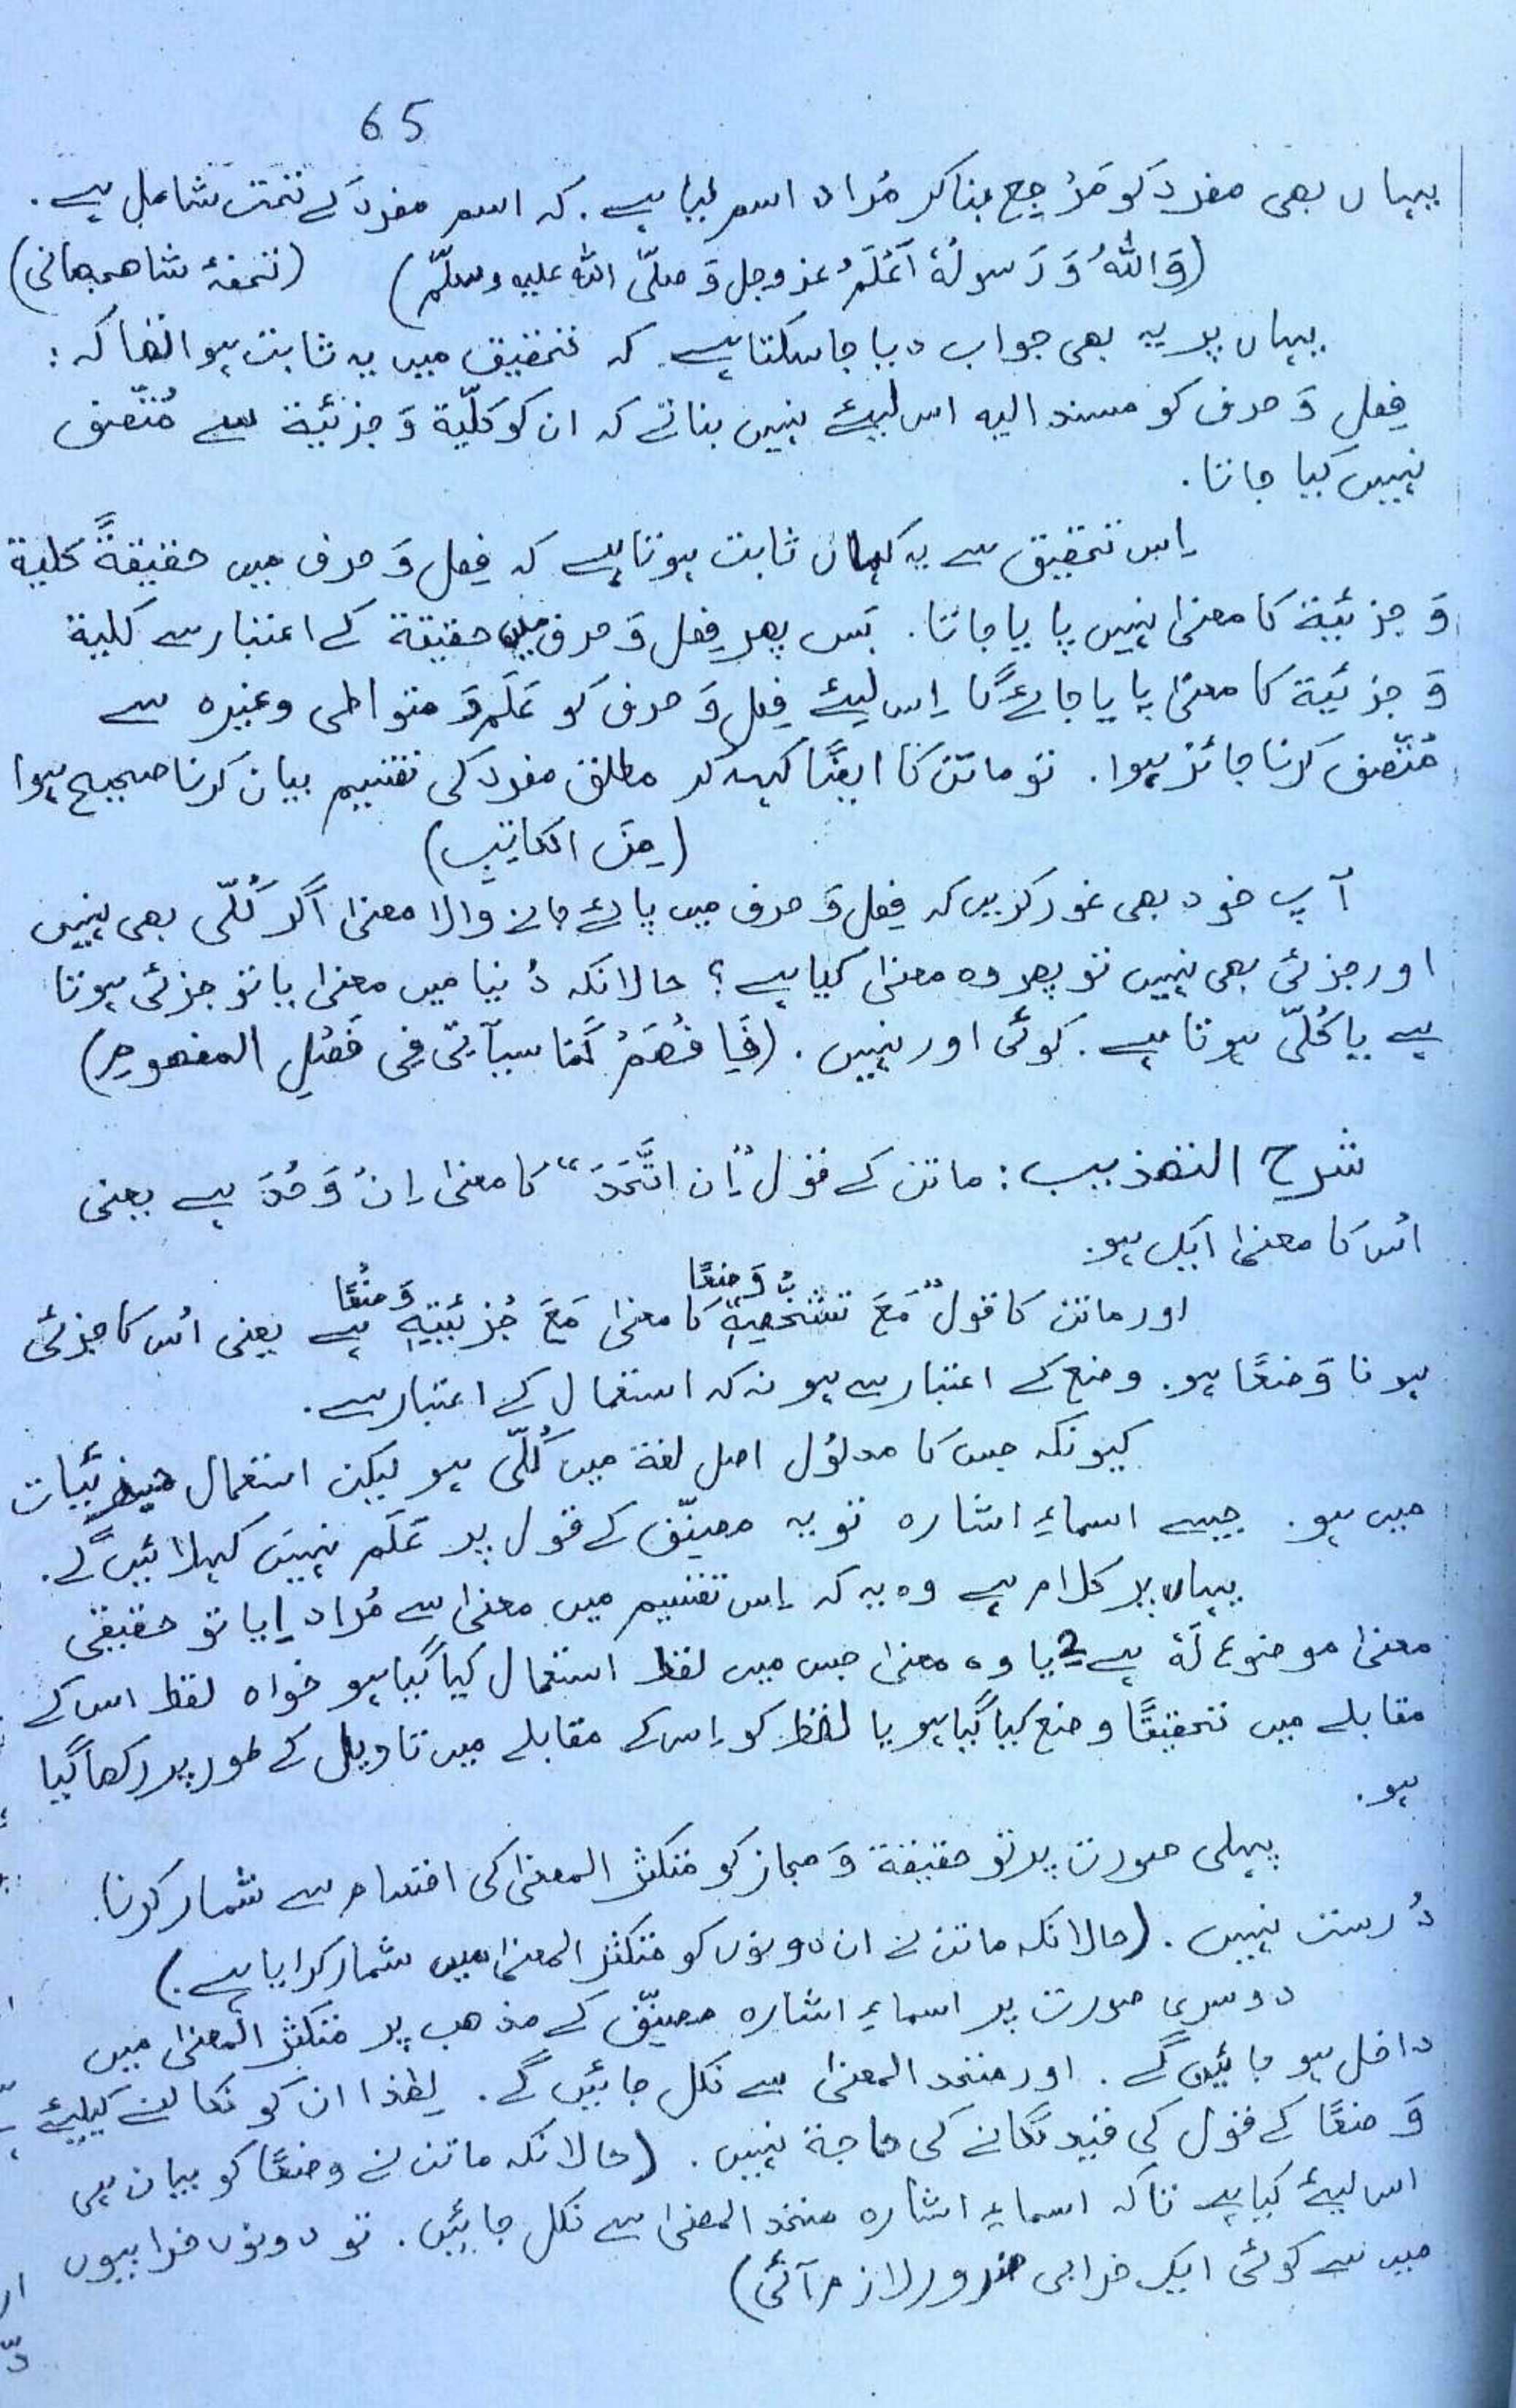 65
یہاں بھی مفرد کو مَرْجِع بنا کر مُراد اسم لیا ہے. کہ اسم مفرد کے تحت شامل ہے.
(وَاللہُ وَ رَسولُہٗ اَعْلَمُ عزوجل وَ صلّی اللہ علیہ وسلّم) (تحفۂ شاھجہانی)
یہاں پر یہ بھی جواب دیا جا سکتا ہے کہ تحقیق میں یہ ثابت ہوا تھا کہ:
فِعل وَ حرف کو مسند الیہ اس لیئے نہیں بناتے کہ ان کو کلّیة وَ جزئیّة سے مُتّصف
نہیں کیا جاتا.
اِس تحقیق سے یہ کہاں ثابت ہوتا ہے کہ فِعل وَ حرف میں حقیقةً کلیة
وَ جزئیة کا معنیٰ نہیں پایا جاتا. بَس پھر فِعل وَ حرف میں حقیقة کے اعتبار سے کلیة
وَ جزئیة کا معنیٰ پایا جائے گا اِس لیئے فِعل وَ حرف کو عَلَم وَ متواطی وغیرہ سے
مُتّصف کرنا جائز ہوا. تو ماتن کا ایضًا کہہ کر مطلق مفرد کی تقسیم بیان کرنا صحیح ہوا
(مِنَ الکاتِبِ)
آپ خود بھی غور کریں کہ فِعل وَ حرف میں پائے جانے والا معنیٰ اگر کُلّی بھی نہیں
اور جزئی بھی نہیں تو پھر وہ معنیٰ کیا ہے؟ حالانکہ دُنیا میں معنیٰ یا تو جزئی ہوتا
ہے یا کُلّی ہوتا ہے. کوئی اور نہیں. (فَافْهَمْ کَمَا سیآتی فِی فَصْلِ المفھومِ)
شرح التھذیب: ماتن کے قول "اِن اتَّحَدَ" کا معنیٰ اِنْ وَحُدَ ہے یعنی
اُس کا معنیٰ ایک ہو.
اور ماتن کا قول "مَعَ تشخُّصِهٖ وَضعًا" کا معنیٰ مَعَ جُزئیّتِهٖ وَضْعًا ہے یعنی اُس کا جزئی
ہونا وَضعًا ہو. وضع کے اعتبار سے ہو نہ کہ استعمال کے اعتبار سے.
کیونکہ جس کا مدلُول اصل لغة میں کُلّی ہو لیکن استعمال جزئیات
میں ہو. جیسے اسماءِ اشارہ تو یہ مصنِّف کے قول پر عَلَم نہیں کہلائیں گے.
یہاں پر کلام ہے وہ یہ کہ اِس تقسیم میں معنیٰ سے مُراد 1 یا تو حقیقی
معنیٰ موضوع لَہٗ ہے 2 یا وہ معنیٰ جس میں لفظ استعمال کیا گیا ہو خواہ لفظ اس کے
مقابلے میں تحقیقًا وضع کیا گیا ہو یا لفظ کو اِس کے مقابلے میں تاویل کے طور پر رکھا گیا
ہو.
پہلی صورت پر تو حقیقة وَ مجاز کو متکثر المعنیٰ کی اقسام سے شمار کرنا
دُرست نہیں. (حالانکہ ماتن نے ان دونوں کو متکثر المعنیٰ میں شمار کرایا ہے.)
دوسری صورت پر اسماءِ اشارہ مصنِّف کے مذھب پر متکثر المعنیٰ میں
داخل ہو جائیں گے. اور متحد المعنیٰ سے نکل جائیں گے. لِھٰذا ان کو نکالنے کیلیئے
وَضعًا کے قول کی قید لگانے کی حاجة نہیں. (حالانکہ ماتن نے وضعًا کو بیان ہی
اس لیئے کیا ہے تاکہ اسماءِ اشارہ متحد المعنیٰ سے نکل جائیں. تو دونوں خرابیوں
میں سے کوئی ایک خرابی ضرور لازم آئی)